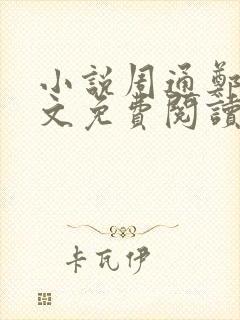 小說周通鄭
文免費閱讀
卡瓦伊